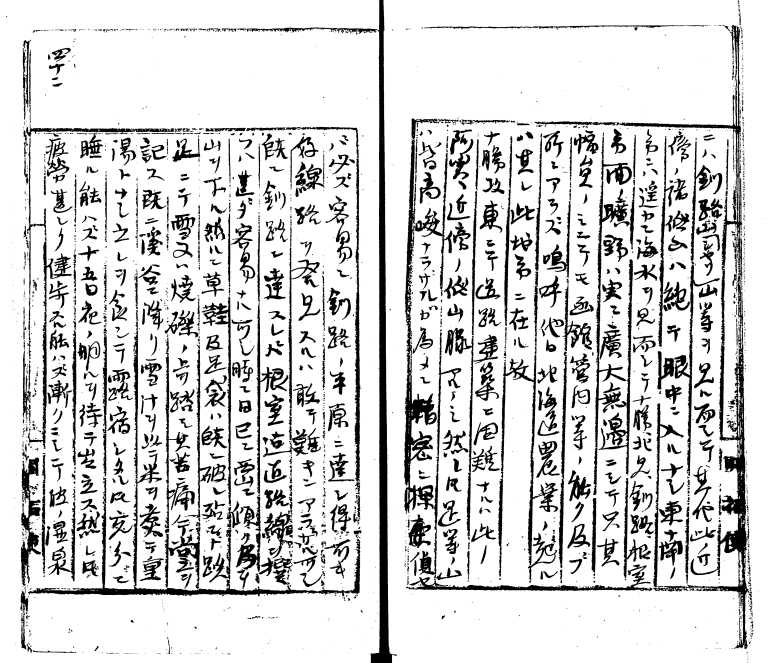 ニハ釧路岳等ノ山等ヲ見ル而シテ其他此近
傍ノ諸低山ハ純テ眼中ニ入ルナレ東南ノ
方ハ遥カニ海水ヲ見而シテ十勝北見釧路根室
ノ曠野ハ実ニ廣大無邊ニシテ只其
幅員ノミニテモ函館管内等ノ能ク及ブ
所ニアラズ嗚呼他日北海道農業ノ起ル
ハ其レ此地ニ在ル歟
十勝以東ニテ道路建築ニ困難ナルハ此ノ
近傍ノ低山脈アルノミ然レ氏是等ノ山
ハ皆高峻ナラザルガ為メニ精密ニ探索偵セ
四十二
バ必ズ容易ニ釧路ノ平原ニ達シ得可キ
線路ヲ発見スルハ敢テ難キニアラザル可シ
既ニ釧路ニ達スレバ根室迄道路線ヲ撰
ブハ甚ダ容易ナル可シ時ニ日已ニ西ニ傾ク及
山ヲ下ル然ルニ草鞋及足袋ハ既ニ破レ跣
足ニテ雪又ハ焼礫ノ上ヲ踏ミ其苦痛今筆ヲ
記ス既ニ渓谷ニ降リ雪汁ヲ以テ米ヲ煮テ重
湯トナシ之レヲ食シテ露宿シタル氏充分ニ
睡ル能ハズ十五日夜ノ明ルヲ待テ出立ス然レ氏
疲労甚シク健歩スル能ハズ漸クニシテ彼ノ湿泉